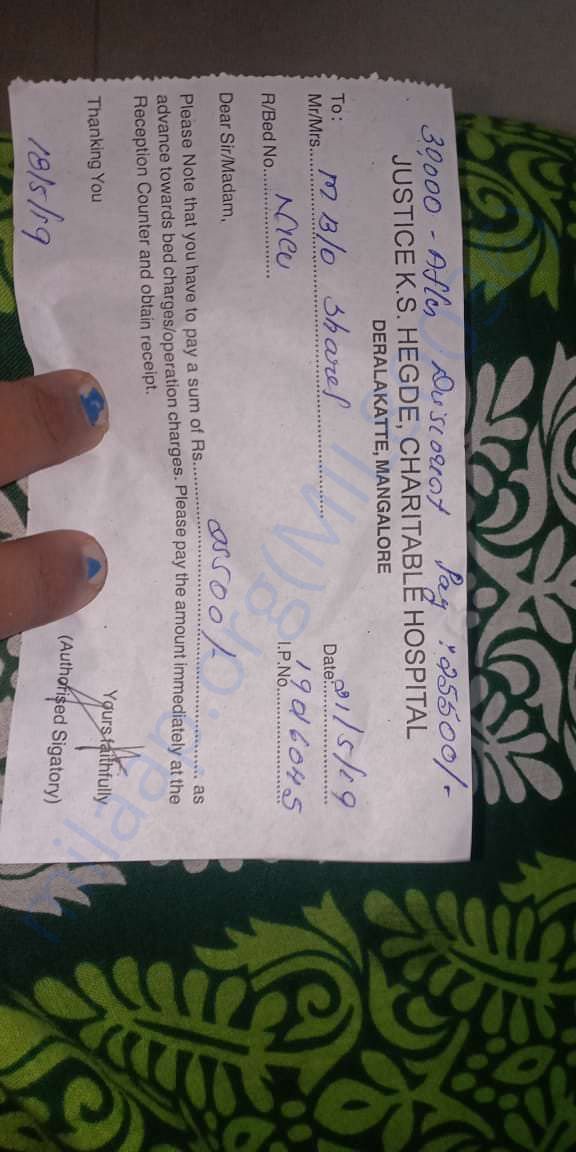 30000 - After Discount Pay: 25500/-
JUSTICE K.S. HEGDE, CHARITABLE HOSPITAL
DERALAKATTE, MANGALORE
To: Date: 21/5/19
Mr/Mrs. M B/O Sharef I.P.No. 1916045
R/Bed No. NICU
Dear Sir/Madam,
Please Note that you have to pay a sum of Rs. 25500/- as
advance towards bed charges/operation charges. Please pay the amount immediately at the
Reception Counter and obtain receipt.
Thanking You Yours faithfully
18/5/19 (Authorised Sigatory)
milaap.org